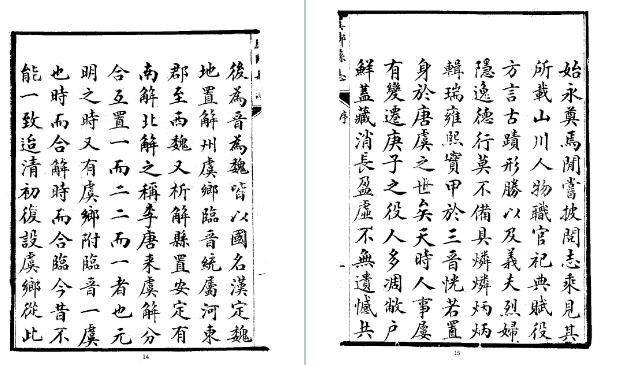 後為晉為魏皆以國名漢定魏
地置解州虞鄉臨晉統屬河東
郡至西魏又析解縣置安定有
南解北解之稱李唐來虞解分
合互置一而二二而一者也元
明之時又有虞鄉附臨晉一虞
也時而合解時而合臨今昔不
能一致迨清初復設虞鄉從此
14
序
始永奠焉閒嘗披閱志乘見其
所載山川人物職官祀典賦役
方言古蹟形勝以及義夫烈婦
隱逸德行莫不備具燐燐炳炳
輯瑞雍熙寶甲於三晉恍若置
身於唐虞之世矣天時人事屢
有變遷庚子之役人多凋敝戶
鮮蓋藏消長盈虛不無遺憾共
15